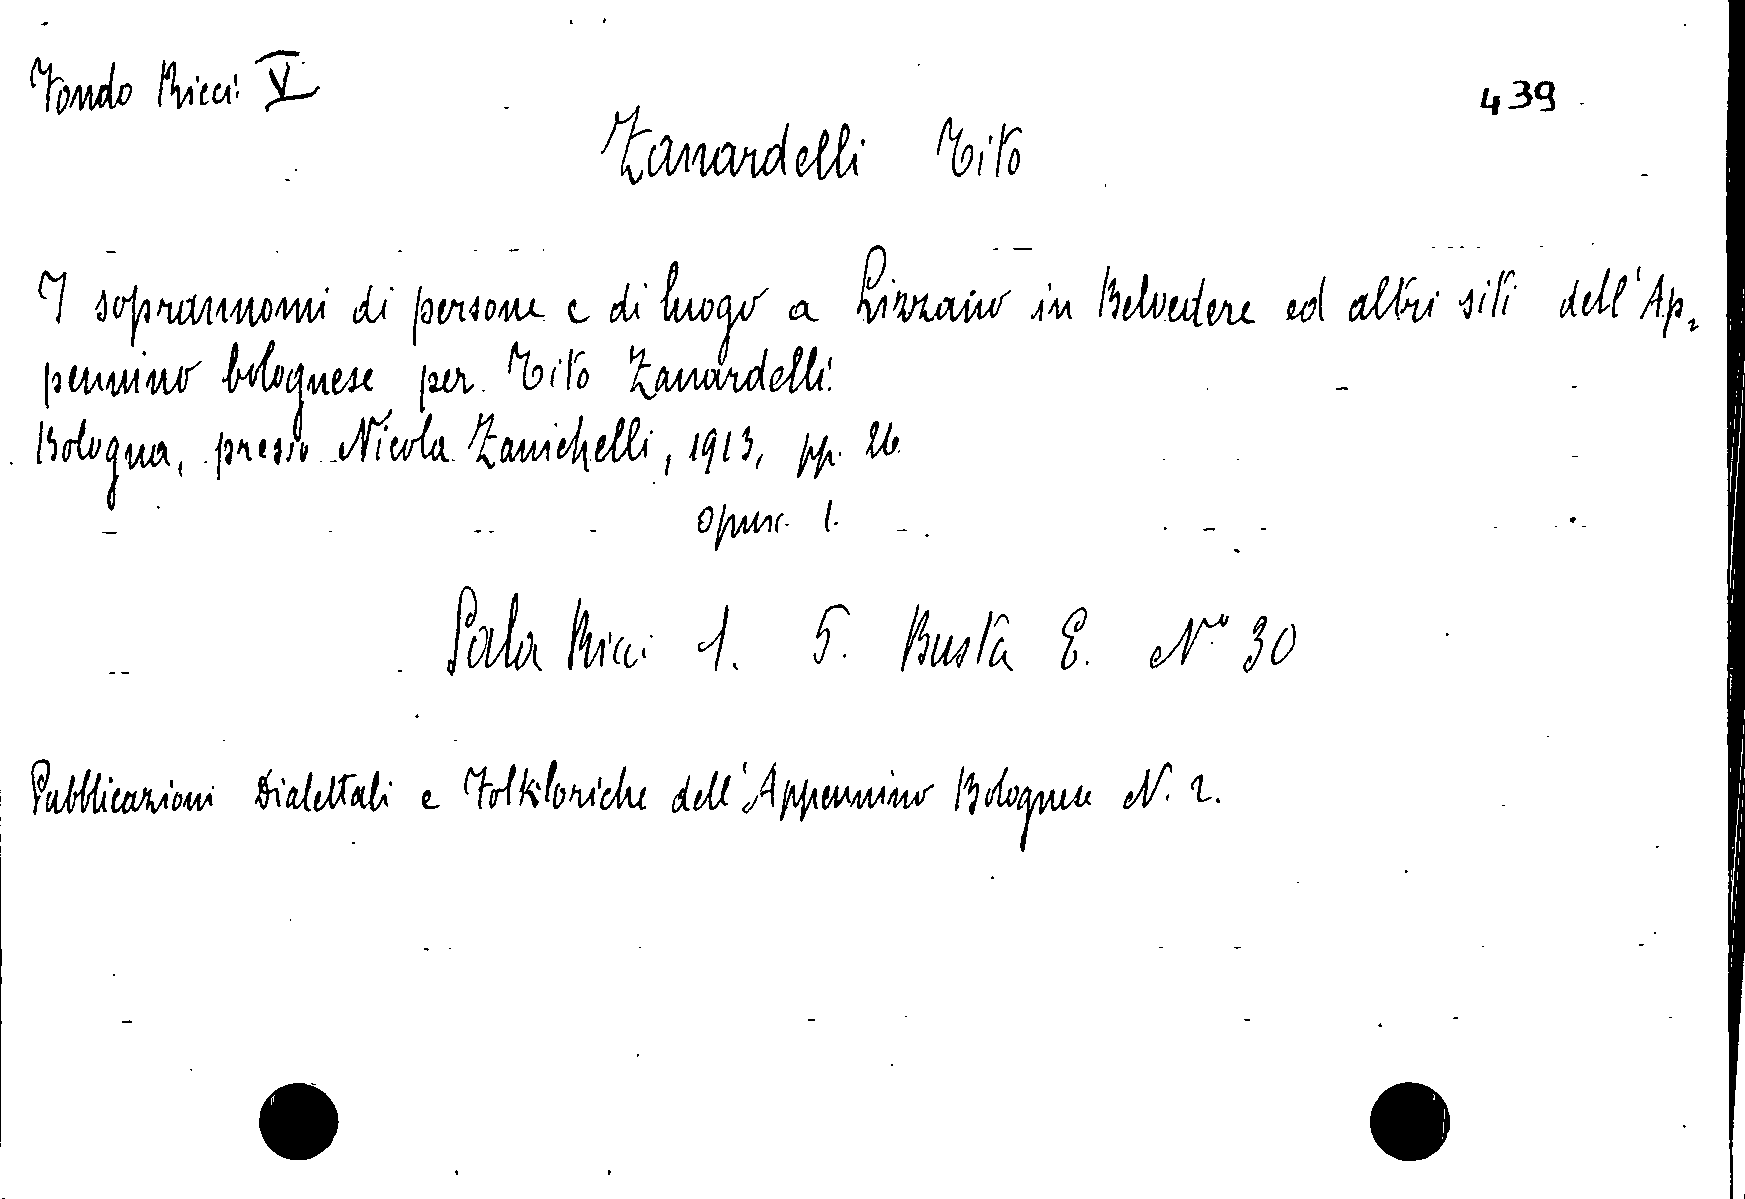 Fondo Ricci V
439
Zanardelli Tito
I soprannomi di persone e di luogo a Lizzano in Belvedere ed altri siti dell'Ap=
pennino bolognese per Tito Zanardelli.
Bologna, presso Nicola Zanichelli, 1913, pp. 26
opusc. 1.
Sala Ricci 1. 5. Busta E. N° 30
Pubblicazioni Dialettali e Folkloriche dell'Appennino Bolognese N. 2.